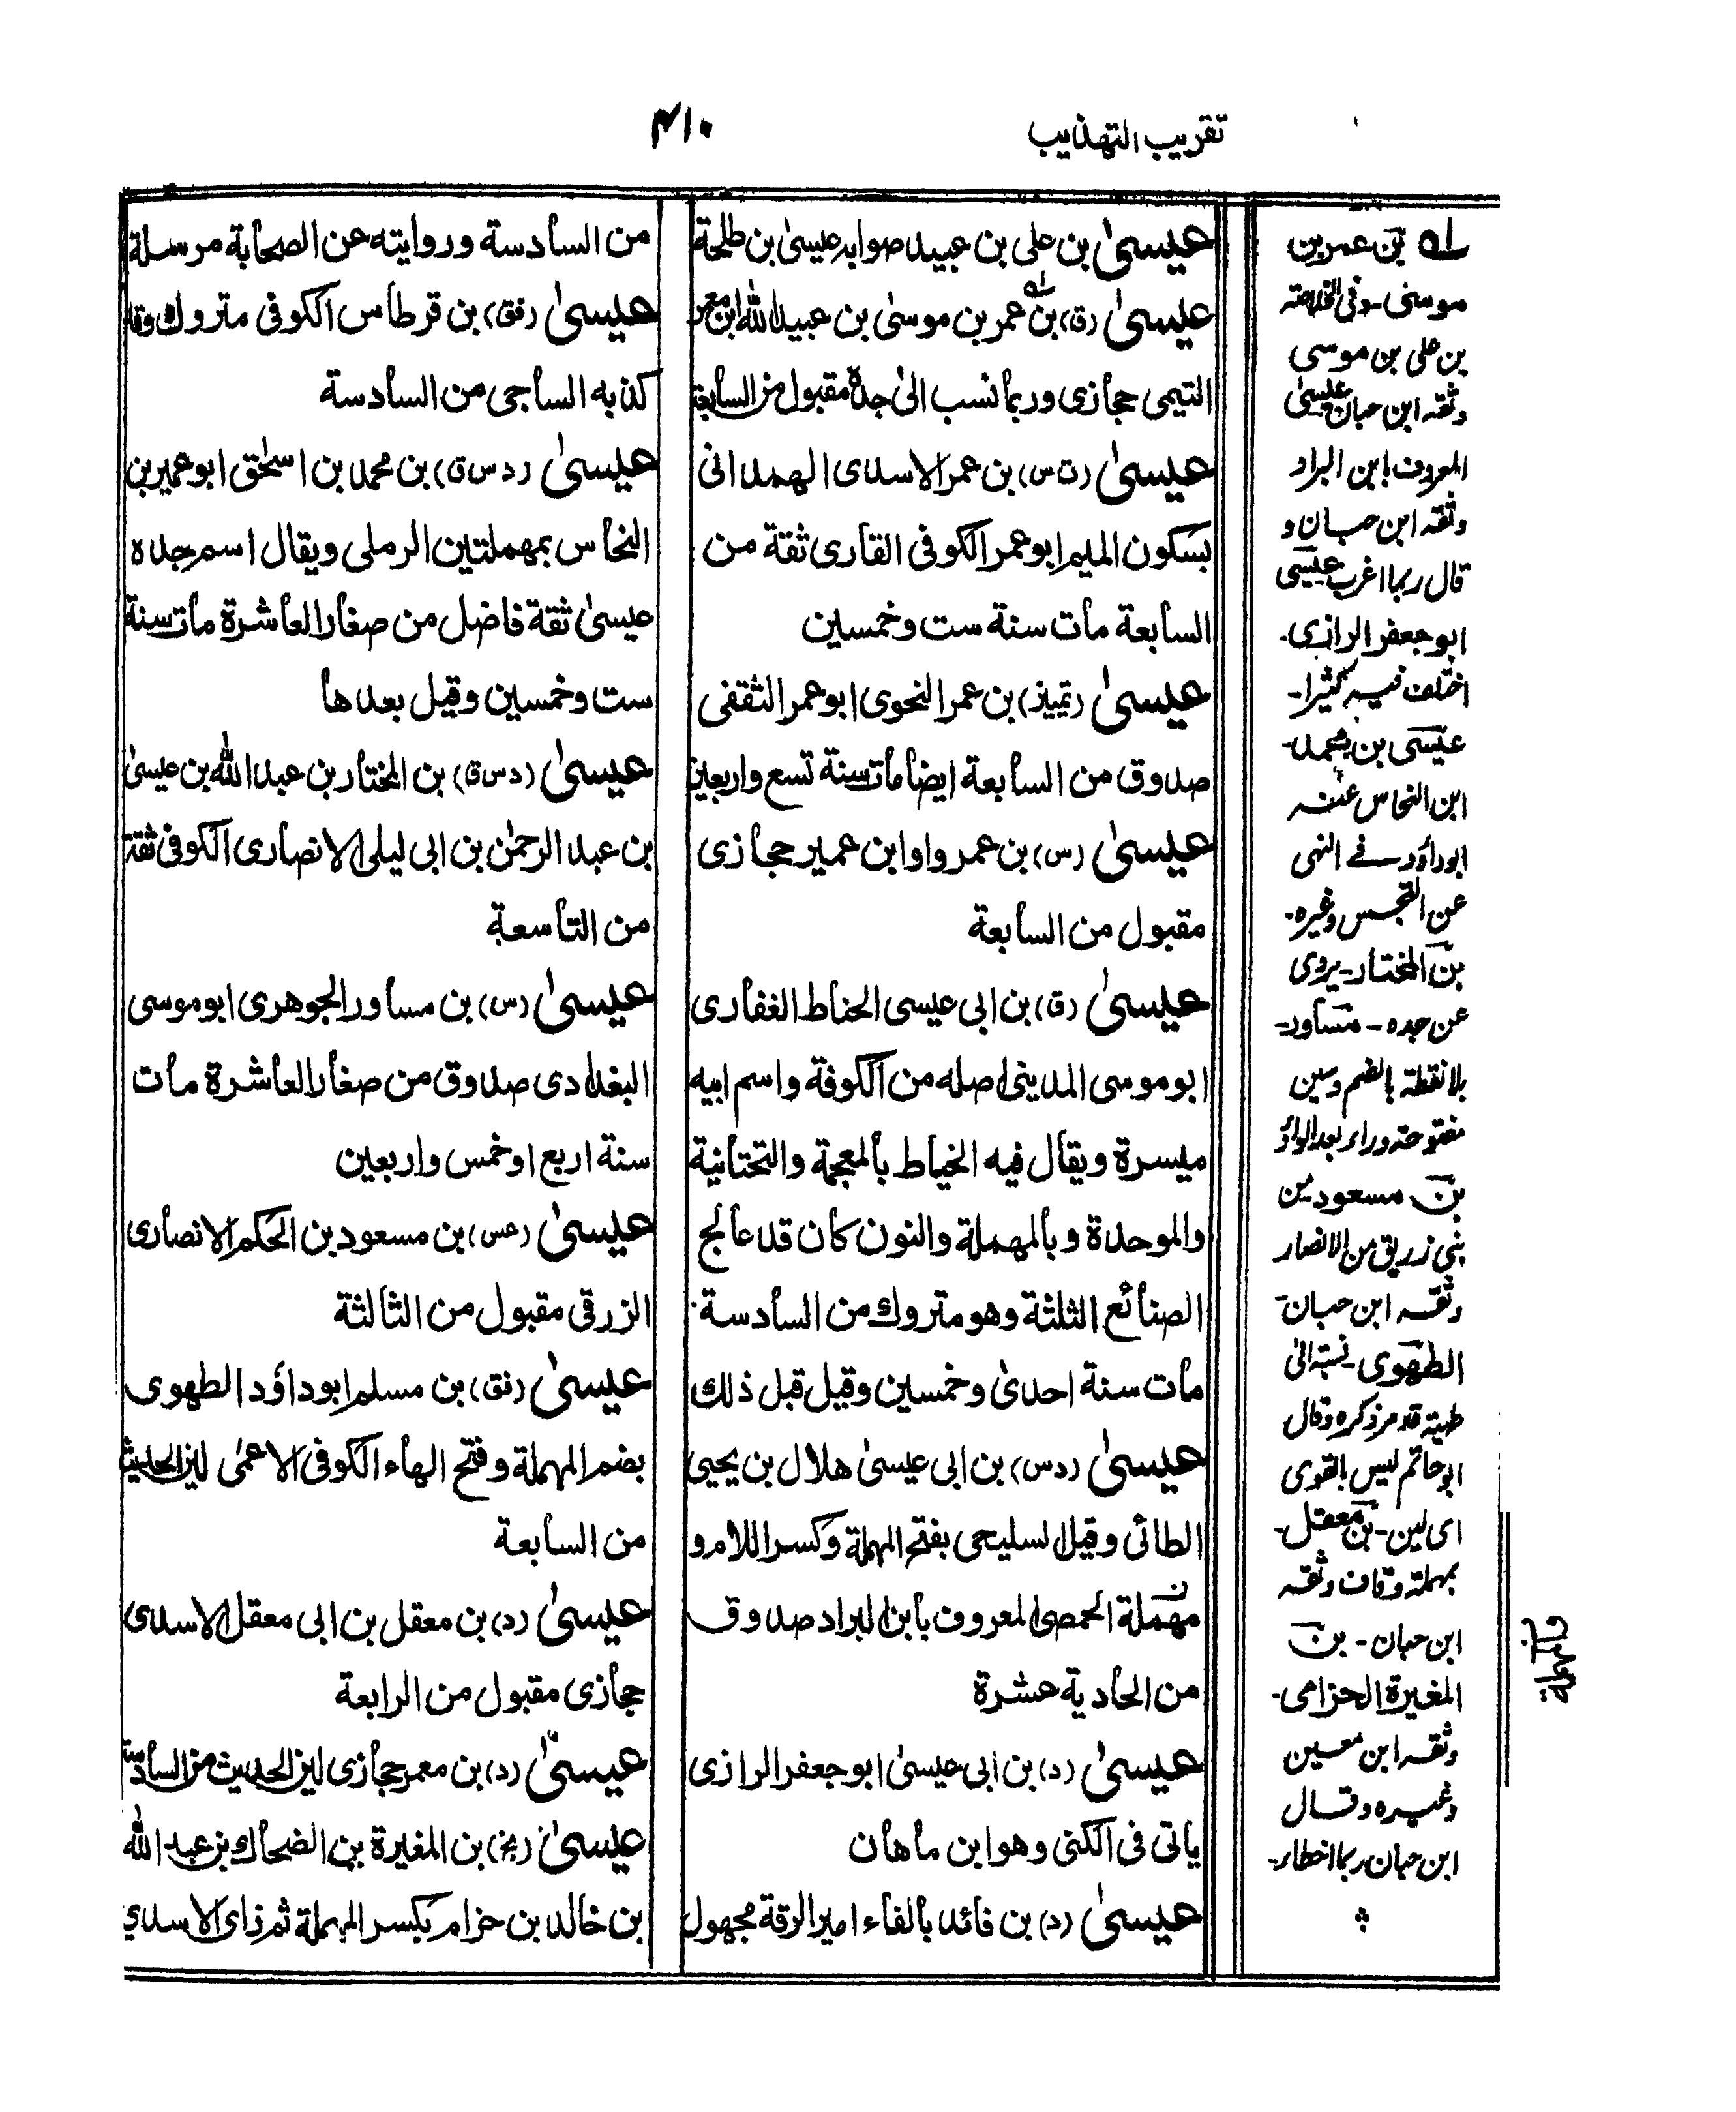 تقريب التهذيب
۴۱۰
عيسىٰ بن على بن عبيد صوابه عيسىٰ بن طلحة
عيسىٰ (ق) بن عمر بن موسىٰ بن عبيد الله ابن معمر
التيمى حجازى وربما نسب الىٰ جده مقبول من السابعة
عيسىٰ (ت س) بن عمر الاسدى الهمدانى
بسكون الميم ابو عمر الكوفى القارى ثقة من
السابعة مات سنة ست وخمسين
عيسىٰ (تمييز) بن عمر النحوى ابو عمر الثقفى
صدوق من السابعة ايضا مات سنة تسع واربعين
عيسىٰ (س) بن عمرو او ابن عمير حجازى
مقبول من السابعة
عيسىٰ (ق) بن ابى عيسى الحناط الغفارى
ابو موسى المدينى اصله من الكوفة واسم ابيه
ميسرة ويقال فيه الخياط بالمعجمة والتحتانية
والموحدة وبالمهملة والنون كان قد عالج
الصنائع الثلثة وهو متروك من السادسة
مات سنة احدىٰ وخمسين وقيل قبل ذلك
عيسىٰ (دس) بن ابى عيسىٰ هلال بن يحيى
الطائى وقيل السليحى بفتح المهملة وكسر اللام و
مهملة الحمصى المعروف بابن البراد صدوق
من الحادية عشرة
عيسىٰ (د) بن ابى عيسىٰ ابو جعفر الرازى
ياتى فى الكنى وهو ابن ماهان
عيسىٰ (د) بن فائد بالفاء امير الرقة مجهول
من السادسة وروايته عن الصحابة مرسلة
عيسىٰ (فق) بن قرطاس الكوفى متروك وقد
كذبه الساجى من السادسة
عيسىٰ (د س ق) بن محمد بن اسحٰق ابو عمير بن
النحاس بمهملتين الرملى ويقال اسم جده
عيسىٰ ثقة فاضل من صغار العاشرة مات سنة
ست وخمسين وقيل بعدها
عيسىٰ (د س ق) بن المختار بن عبد الله بن عيسىٰ
بن عبد الرحمٰن بن ابى ليلى الانصارى الكوفى ثقة
من التاسعة
عيسىٰ (س) بن مساور الجوهرى ابو موسى
البغدادى صدوق من صغار العاشرة مات
سنة اربع او خمس واربعين
عيسىٰ (عس) بن مسعود بن الحكم الانصارى
الزرقى مقبول من الثالثة
عيسىٰ (فق) بن مسلم ابو داؤد الطهوى
بضم المهملة وفتح الهاء الكوفى الاعمٰى لين الحديث
من السابعة
عيسىٰ (د) بن معقل بن ابى معقل الاسدى
حجازى مقبول من الرابعة
عيسىٰ (د) بن معمر حجازى لين الحديث من السادسة
عيسىٰ (بخ) بن المغيرة بن الضحاك بن عبد الله
بن خالد بن حزام بكسر المهملة ثم زاى الاسدي
له بن عمر بن
موسىٰ - وفى الخلاصة
بن على بن موسى
وثقه ابن حبان عيسىٰ
المعروف بابن البراد
وثقه ابن حبان و
قال ربما اغرب عيسى
ابو جعفر الرازى.
اختلف فيه كثيرا -
عيسى بن محمد -
ابن النحاس عنه
ابو داؤد فى النهى
عن التجسس وغيره -
بن المختار - يروى
عن جده - مساور -
بلا نقطة بالضم وسين
مفتوحة وراء بعد الواؤ
بن مسعود من
بنى زريق من الانصار
وثقه ابن حبان -
الطهوى - نسبة الىٰ
طهية قد مر ذكره وقال
ابو حاتم ليس بالقوى
اى لين - بن معقل -
بمهملة وقاف وثقه
ابن حبان - بن
المغيرة الحزامى -
وثقه ابن معين
وغيره وقال
ابن حبان ربما اخطاء -